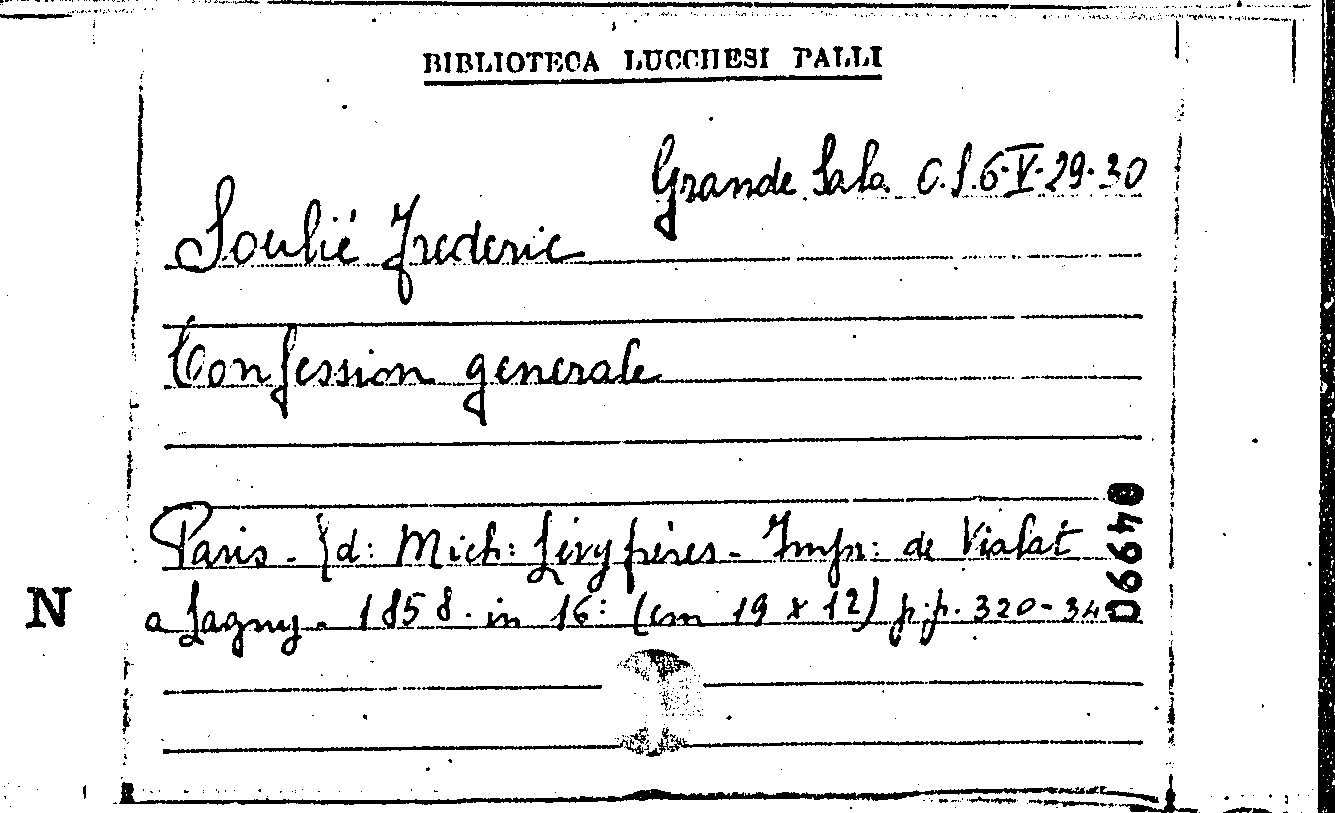 BIBLIOTECA LUCCHESI PALLI
Grande Sala C.S.6.V.29.30
Soulié Frederic
Confession generale
Paris - Ed: Mich: Lévy frères - Impr: de Vialat
a Lagny - 1858. in 16: (cm 19 x 12) p.p. 320-34
04990
N